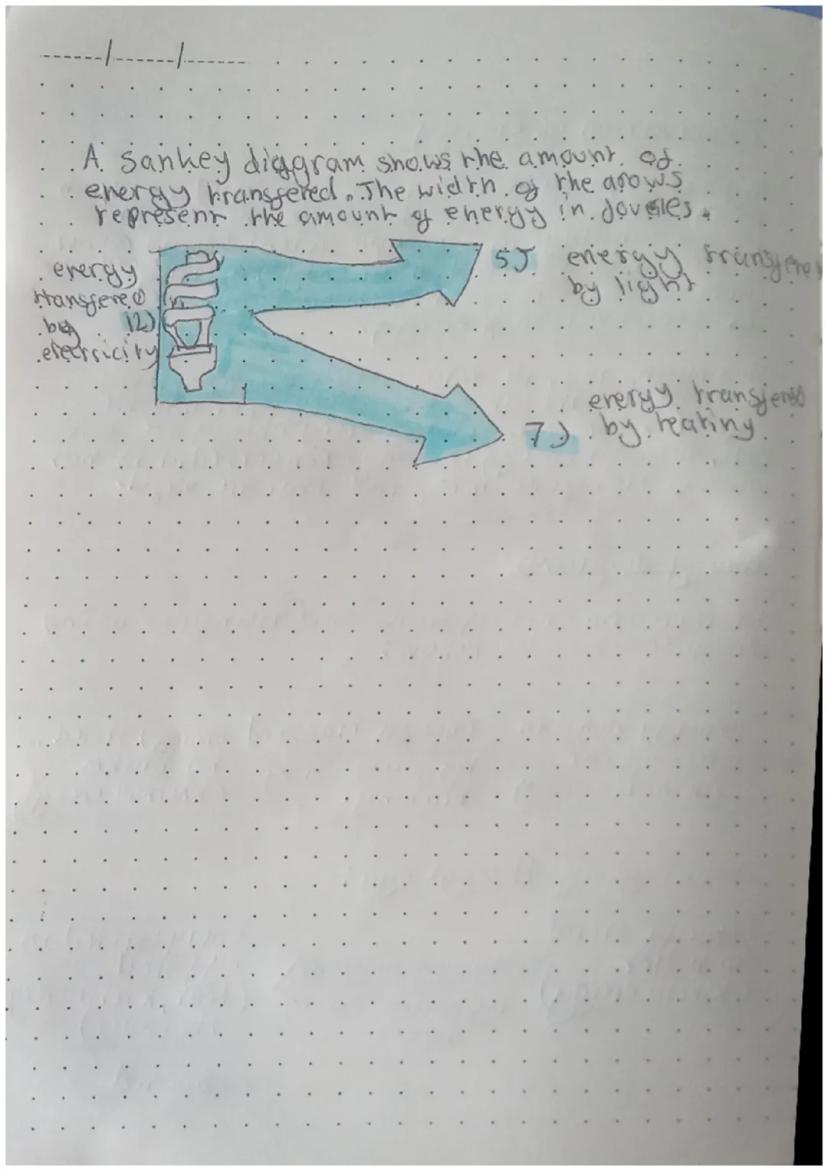 A Sankey diagram shows the amount of
energy transfered. The width of the arows
represent the amount of energy in joules.
energy
transfered
by 12J
electricity
5J energy transfered
by light
energy transfered
7J by heating